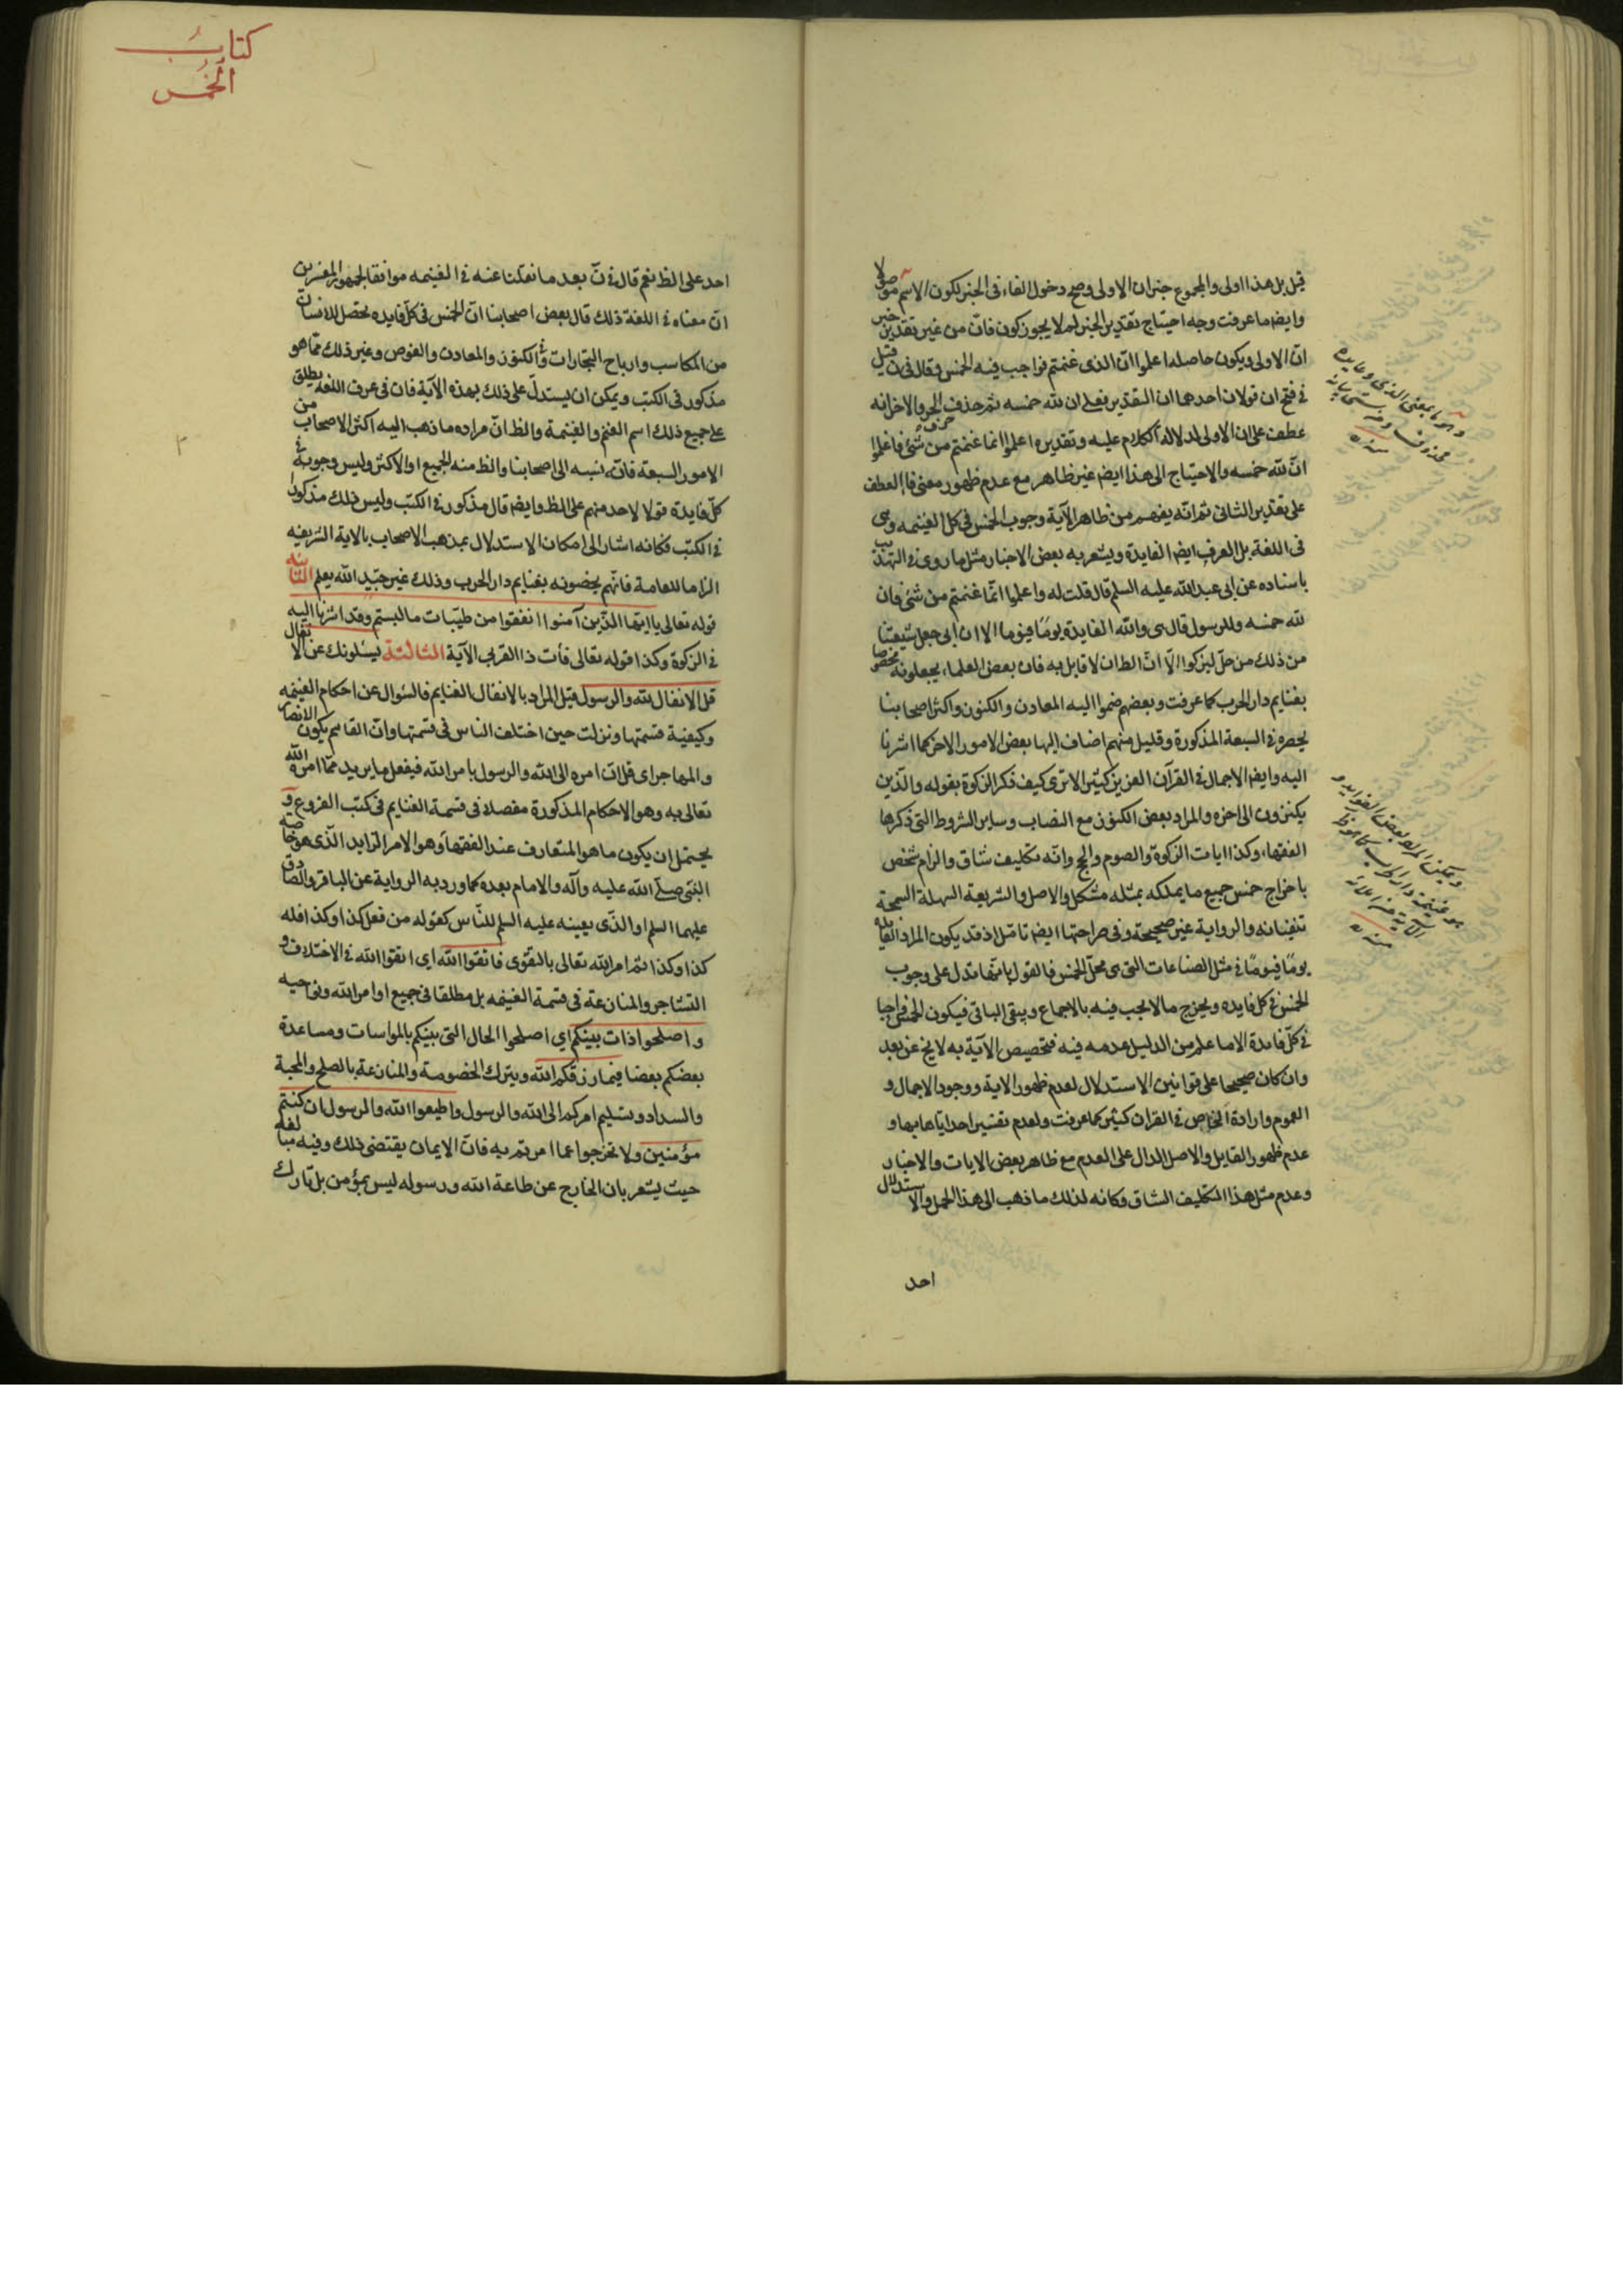 قيل بل هذا اولى والمجموع خبر ان الاولى وصح دخول الفاء فى الخبر لكون الاسم موصولا
وايضا ما عرفت وجه احتياج تقدير الخبر لم لا يجوز كون فان من غير تقدير خبر
ان الاولى ويكون حاصله اعلموا ان الذى غنمتم فواجب فيه الخمس وقال فى ن قيل
فى فتح ان قولان احدهما ان التقدير فعلى ان لله خمسه ثم حذف حرف الجر والاخر انه
عطف على ان الاولى لدلالة الكلام عليه وتقديره اعلموا انما غنمتم من شئ فاعلموا
ان لله خمسه والاحتياج الى هذا ايضا غير ظاهر مع عدم ظهور معنى فا العطف
على تقدير الثانى ثم انه يفهم من ظاهر الآية وجوب الخمس فى كل الغنيمه وهى
فى اللغة بل العرف ايضا الفايدة ويشعر به بعض الاخبار مثل ما روى فى التهذيب
باسناده عن ابى عبد الله عليه السلم قال قلت له واعلموا انما غنمتم من شئ فان
لله خمسه وللرسول قال هى والله الفايدة يومًا فيوما الا ان ابى جعل شيعتنا
من ذلك من حل ليزكوا الا ان الظ ان لا قايل به فان بعض العلماء يجعلونه مخصوصا
بغنايم دار الحرب كما عرفت وبعضهم ضموا اليه المعادن والكنوز واكثر اصحابنا
يحصره فى السبعة المذكورة وقليل منهم اضاف اليها بعض الامور الاخر كما اشرنا
اليه وايضا الاجمال فى القرآن العزيز كثير الا ترى كيف ذكر الزكوة بقوله والذين
يكنزون الى اخره والمراد بعض الكنوز مع النصاب وساير الشروط التى ذكرها
الفقهاء وكذا ايات الزكوة والصوم والحج وانه تكليف شاق والزام شخص
باخراج خمس جميع ما يملكه بمثله مشكل والاصل والشريعة السهلة السمحة
تنفيانه والرواية غير صحيحة وفى صراحتها ايضا تامل اذ قد يكون المراد الفايدة
يومًا فيومًا فى مثل الصناعات التى هى محل الخمس فالقول بانها تدل على وجوب
الخمس فى كل فايده ويخرج ما لا يجب فيه بالاجماع ويبقى الباقى فيكون الخمس واجبا
فى كل فايدة الا ما علم من الدليل عدمه فيه فتخصيص الآية به لا يخ عن بعد
وان كان صحيحا على قوانين الاستدلال لعدم ظهور الاية ووجود الاجمال و
العموم وارادة الخاص فى القران كثير كما عرفت ولعدم تفسير احد اياها بها و
عدم ظهور القايل والاصل الدال على العدم مع ظاهر بعض الايات والاخبار
وعدم مثل هذا التكليف الشاق وكانه لذلك ما ذهب الى هذا الحمل والاستدلال
احد
وهو ما بمعنى الذى وعايده
محذوف ومن شئ بيانه
منه ره
ويمكن المراد بعض الفوايد و
هو غنيمة دار الحرب كما هو ظ
منه ره
كتابُ
الخُمس
احد على الظ نعم قال فى ن بعد ما نقلنا عنه فى الغنيمه موافقا لجمهور المفسرين
ان معناه فى اللغة ذلك قال بعض اصحابنا ان الخمس فى كل فايده تحصل للانسان
من المكاسب وارباح التجارات وفى الكنوز والمعادن والغوص وغير ذلك مما هو
مذكور فى الكتب ويمكن ان يستدل على ذلك بهذه الآية فان فى عرف اللغة يطلق
على جميع ذلك اسم الغنم والغنيمة والظ ان مراده ما ذهب اليه اكثر الاصحاب من
الامور السبعة فانه نسبه الى اصحابنا والظ منه الجميع او الاكثر وليس وجوبه فى
كل فايدة قولا لاحد منهم على الظ وايضا قال مذكور فى الكتب وليس ذلك مذكورا
فى الكتب فكانه اشار الى امكان الاستدلال بمذهب الاصحاب بالاية الشريفه
الزاما للعامة فانهم يخصونه بغنايم دار الحرب وذلك غير جيد الله يعلم الثانية
قوله تعالى يا ايها الذين آمنوا انفقوا من طيبات ما كسبتم وقد اشرنا اليه
فى الزكوة وكذا قوله تعالى فآت ذا القربى الآية الثالثة يسئلونك عن الانفال
قل الانفال لله والرسول قيل المراد بالانفال الغنايم فالسؤال عن احكام الغنيمه
وكيفية قسمتها ونزلت حين اختلف الناس فى قسمتها وان القاسم يكون الانصار
والمهاجر اى قل ان امره الى الله والرسول بامر الله فيفعل ما يريد مما امره الله
تعالى به وهو الاحكام المذكورة مفصلا فى قسمة الغنايم فى كتب الفروع و
يحتمل ان يكون ما هو المتعارف عند الفقهاء وهو الامر الزايد الذى هو خاصه
النبى صلى الله عليه وآله والامام بعده كما ورد به الرواية عن الباقر والصادق
عليهما السلم او الذى يعينه عليه السلم للناس كقوله من فعل كذا وكذا فله
كذا وكذا ثم امر الله تعالى بالتقوى فاتقوا الله اى اتقوا الله فى الاختلاف و
التشاجر والمنازعة فى قسمة الغنيمه بل مطلقا فى جميع اوامر الله ونواهيه
واصلحوا ذات بينكم اى اصلحوا الحال التى بينكم بالمواسات ومساعدة
بعضكم بعضا فيما رزقكم الله وبترك الخصومة والمنازعة بالصلح والمحبة
والسداد وتسليم امركم الى الله والرسول واطيعوا الله والرسول ان كنتم
مؤمنين ولا تخرجوا عما امرتم به فان الايمان يقتضى ذلك وفيه مبالغه
حيث يشعر بان الخارج عن طاعة الله ورسوله ليس بمؤمن بل تارك